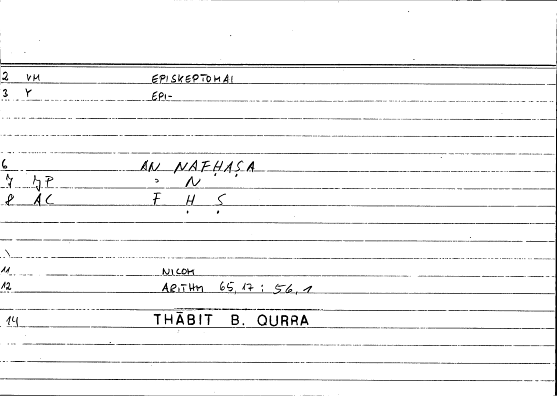 2 VM EPISKEPTOMAI
3 Y EPI-
6 AN NAFḤAṢA
7 JP = N
8 AC F Ḥ Ṣ
11 NICOM
12 ARITHM 65,17 : 56,1
14 THĀBIT B. QURRA